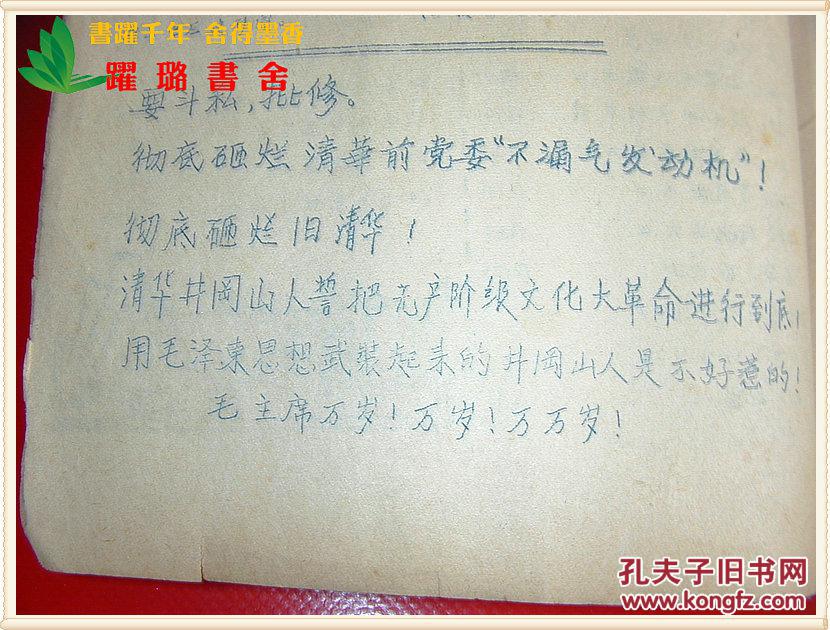 書躍千年 舍得墨香
躍璐書舍
要斗私,批修。
彻底砸烂清華前党委“不漏气发动机”!
彻底砸烂旧清华!
清华井岡山人誓把无产阶级文化大革命进行到底!
用毛泽東思想武裝起来的井岡山人是不好惹的!
毛主席万岁!万岁!万万岁!
孔夫子旧书网
www.kongfz.com